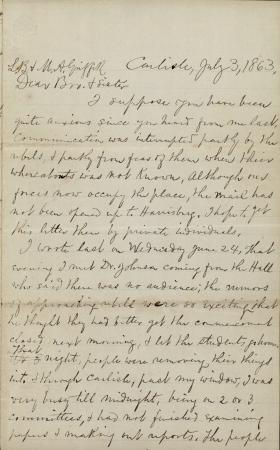 Carlisle, July 3, 1863.
L.B & M.A. Griffith
Dear Bro. & Sister
I suppose you have been
quite anxious since you heard from me last,
Communication was interrupted partly by the
rebels, & partly from fear of them when their
whereabouts was not known, Although our
forces now occupy the place, the mail has
not been opened up to Harrisburg, I hope to get
this letter there by private individuals.
I wrote last on Wednesday June 24, that
evening I met Dr. Johnson coming from the Hall
who said there was no audience; the rumors
of approaching rebels were so exciting that
he thought they had better get the commencement
closed next morning, & let the students go home.
That night, people were removing their things
into & through Carlisle, past my window, I was
very busy till midnight, being on 2 or 3
committees, & had not finished examining
papers & making out reports. The people